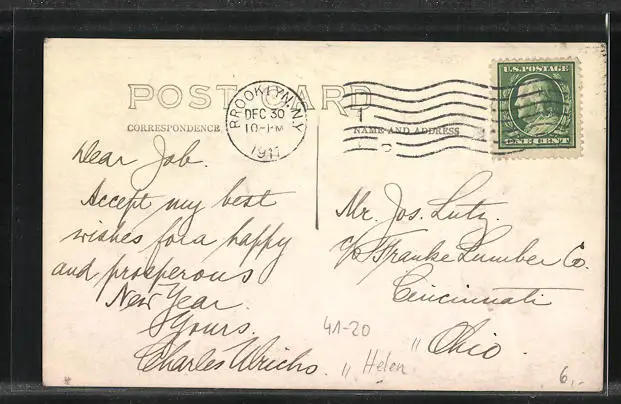 POST CARD
CORRESPONDENCE
NAME AND ADDRESS
BROOKLYN, N.Y.
DEC 30
10-PM
1911
1
D
U.S. POSTAGE
ONE CENT
Dear Job.
Accept my best
wishes for a happy
and prosperous
New Year.
Yours.
Charles Ulrichs.
Mr. Jos. Lutz.
c/o Franke Lumber Co.
Cincinnati
" Ohio.
41-20
" Helen
6,-